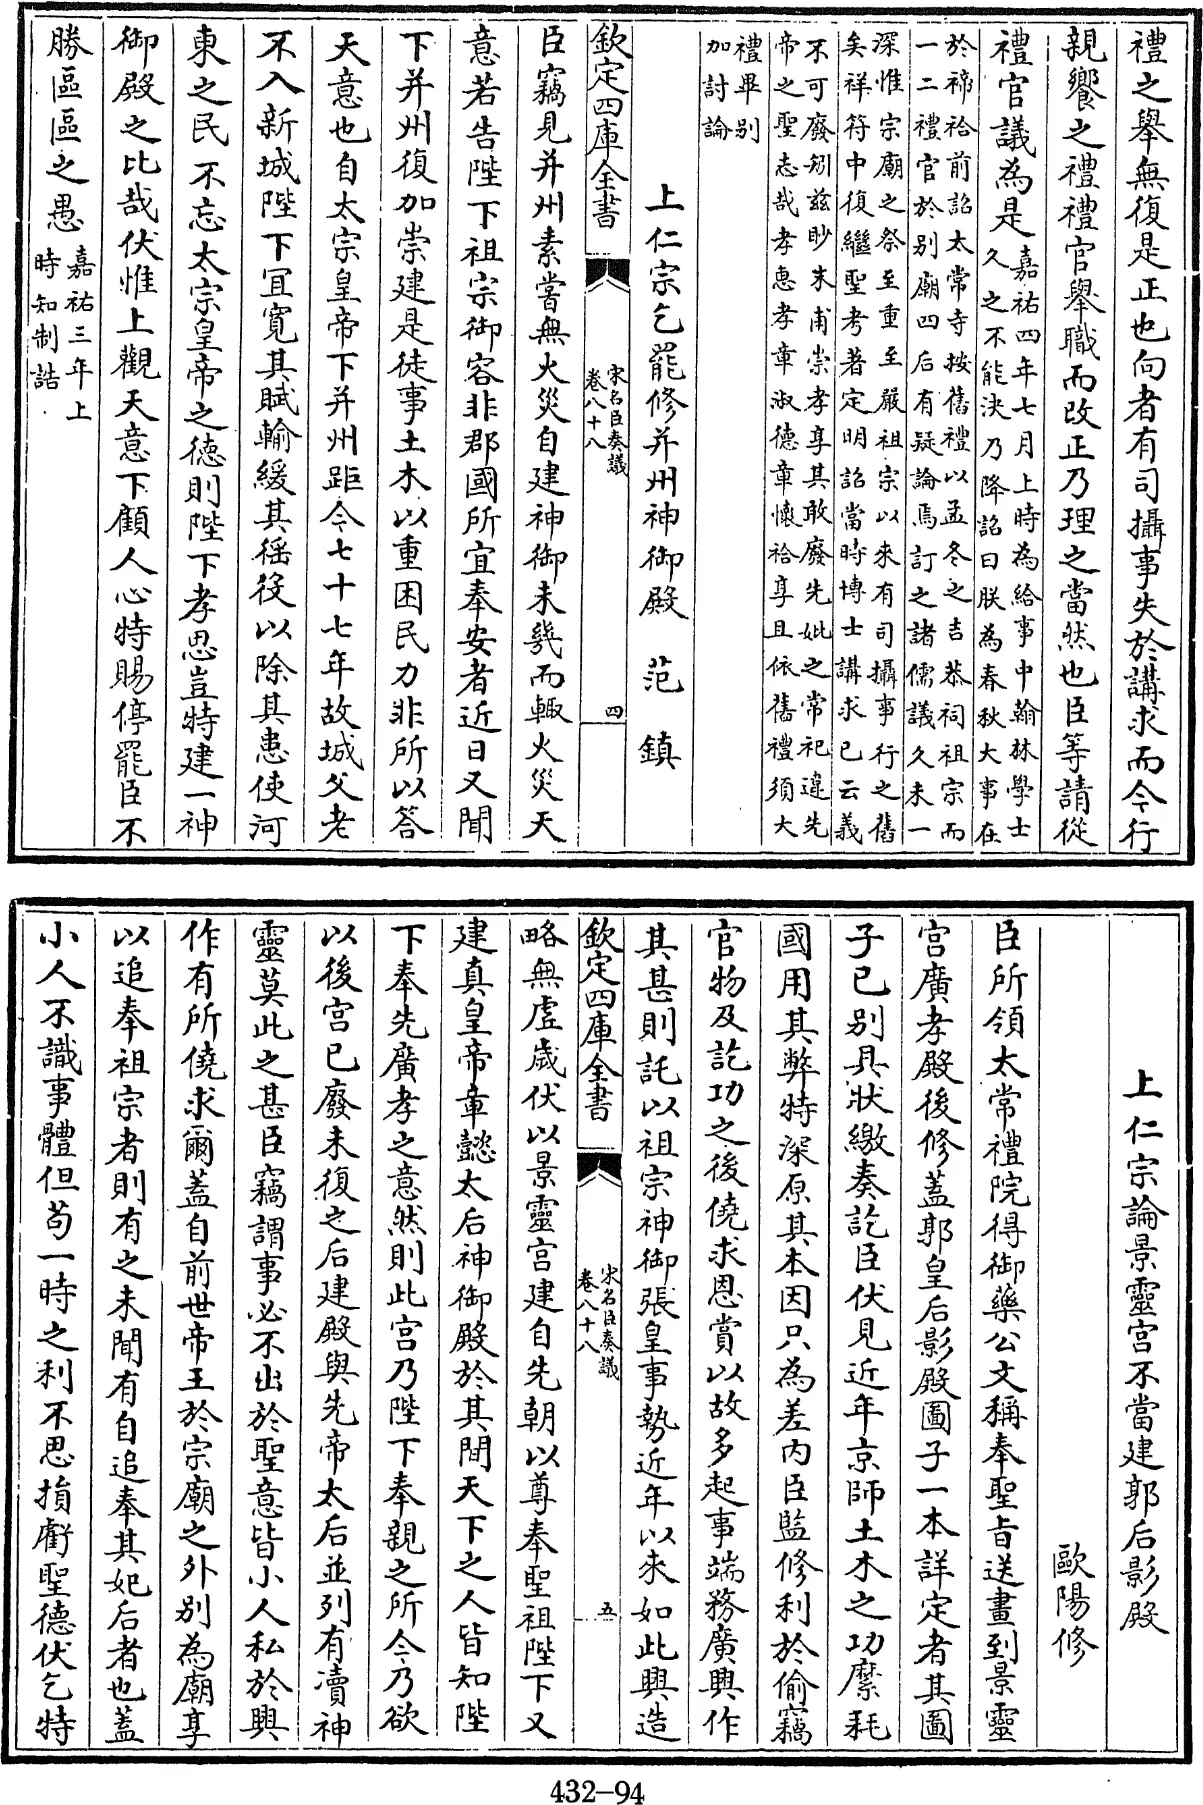 禮之舉無復是正也向者有司攝事失於講求而今行
親饗之禮禮官舉職而改正乃理之當然也臣等請從
禮官議為是
嘉祐四年七月上時為給事中翰林學士
久之不能決乃降詔曰朕為春秋大事在
於禘祫前詔太常寺按舊禮以孟冬之吉恭祠祖宗而
一二禮官於別廟四后有疑論焉訂之諸儒議久未一
深惟宗廟之祭至重至嚴祖宗以來有司攝事行之舊
矣祥符中復繼聖考著定明詔當時博士講求已云義
不可廢矧茲眇末甫崇孝享其敢廢先妣之常祀違先
帝之聖志哉孝惠孝章淑德章懷祫享且依舊禮須大
禮畢別
加討論
上仁宗乞罷修并州神御殿 范鎮
欽定四庫全書
宋名臣奏議
卷八十八
四
臣竊見并州素嘗無火災自建神御未幾而輒火災天
意若告陛下祖宗御容非郡國所宜奉安者近日又聞
下并州復加崇建是徒事土木以重困民力非所以答
天意也自太宗皇帝下并州距今七十七年故城父老
不入新城陛下宜寬其賦輸緩其徭役以除其患使河
東之民不忘太宗皇帝之德則陛下孝思豈特建一神
御殿之比哉伏惟上觀天意下顧人心特賜停罷臣不
勝區區之愚
嘉祐三年上
時知制誥
上仁宗論景靈宮不當建郭后影殿
歐陽修
臣所領太常禮院得御藥公文稱奉聖旨送畫到景靈
宮廣孝殿後修蓋郭皇后影殿圖子一本詳定者其圖
子已別具狀繳奏訖臣伏見近年京師土木之功縻耗
國用其弊特深原其本因只為差內臣監修利於偷竊
官物及訖功之後僥求恩賞以故多起事端務廣興作
其甚則託以祖宗神御張皇事勢近年以來如此興造
欽定四庫全書
宋名臣奏議
卷八十八
五
略無虛歲伏以景靈宮建自先朝以尊奉聖祖陛下又
建真皇帝章懿太后神御殿於其間天下之人皆知陛
下奉先廣孝之意然則此宮乃陛下奉親之所今乃欲
以後宮已廢未復之后建殿與先帝太后並列有瀆神
靈莫此之甚臣竊謂事必不出於聖意皆小人私於興
作有所僥求爾蓋自前世帝王於宗廟之外別為廟享
以追奉祖宗者則有之未聞有自追奉其妃后者也蓋
小人不識事體但苟一時之利不思損虧聖德伏乞特
432-94